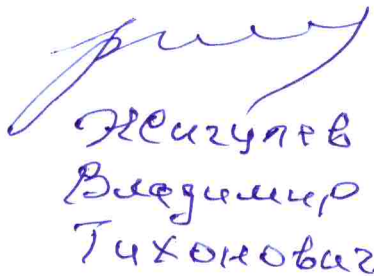 Жигулев
Владимир
Тихонович